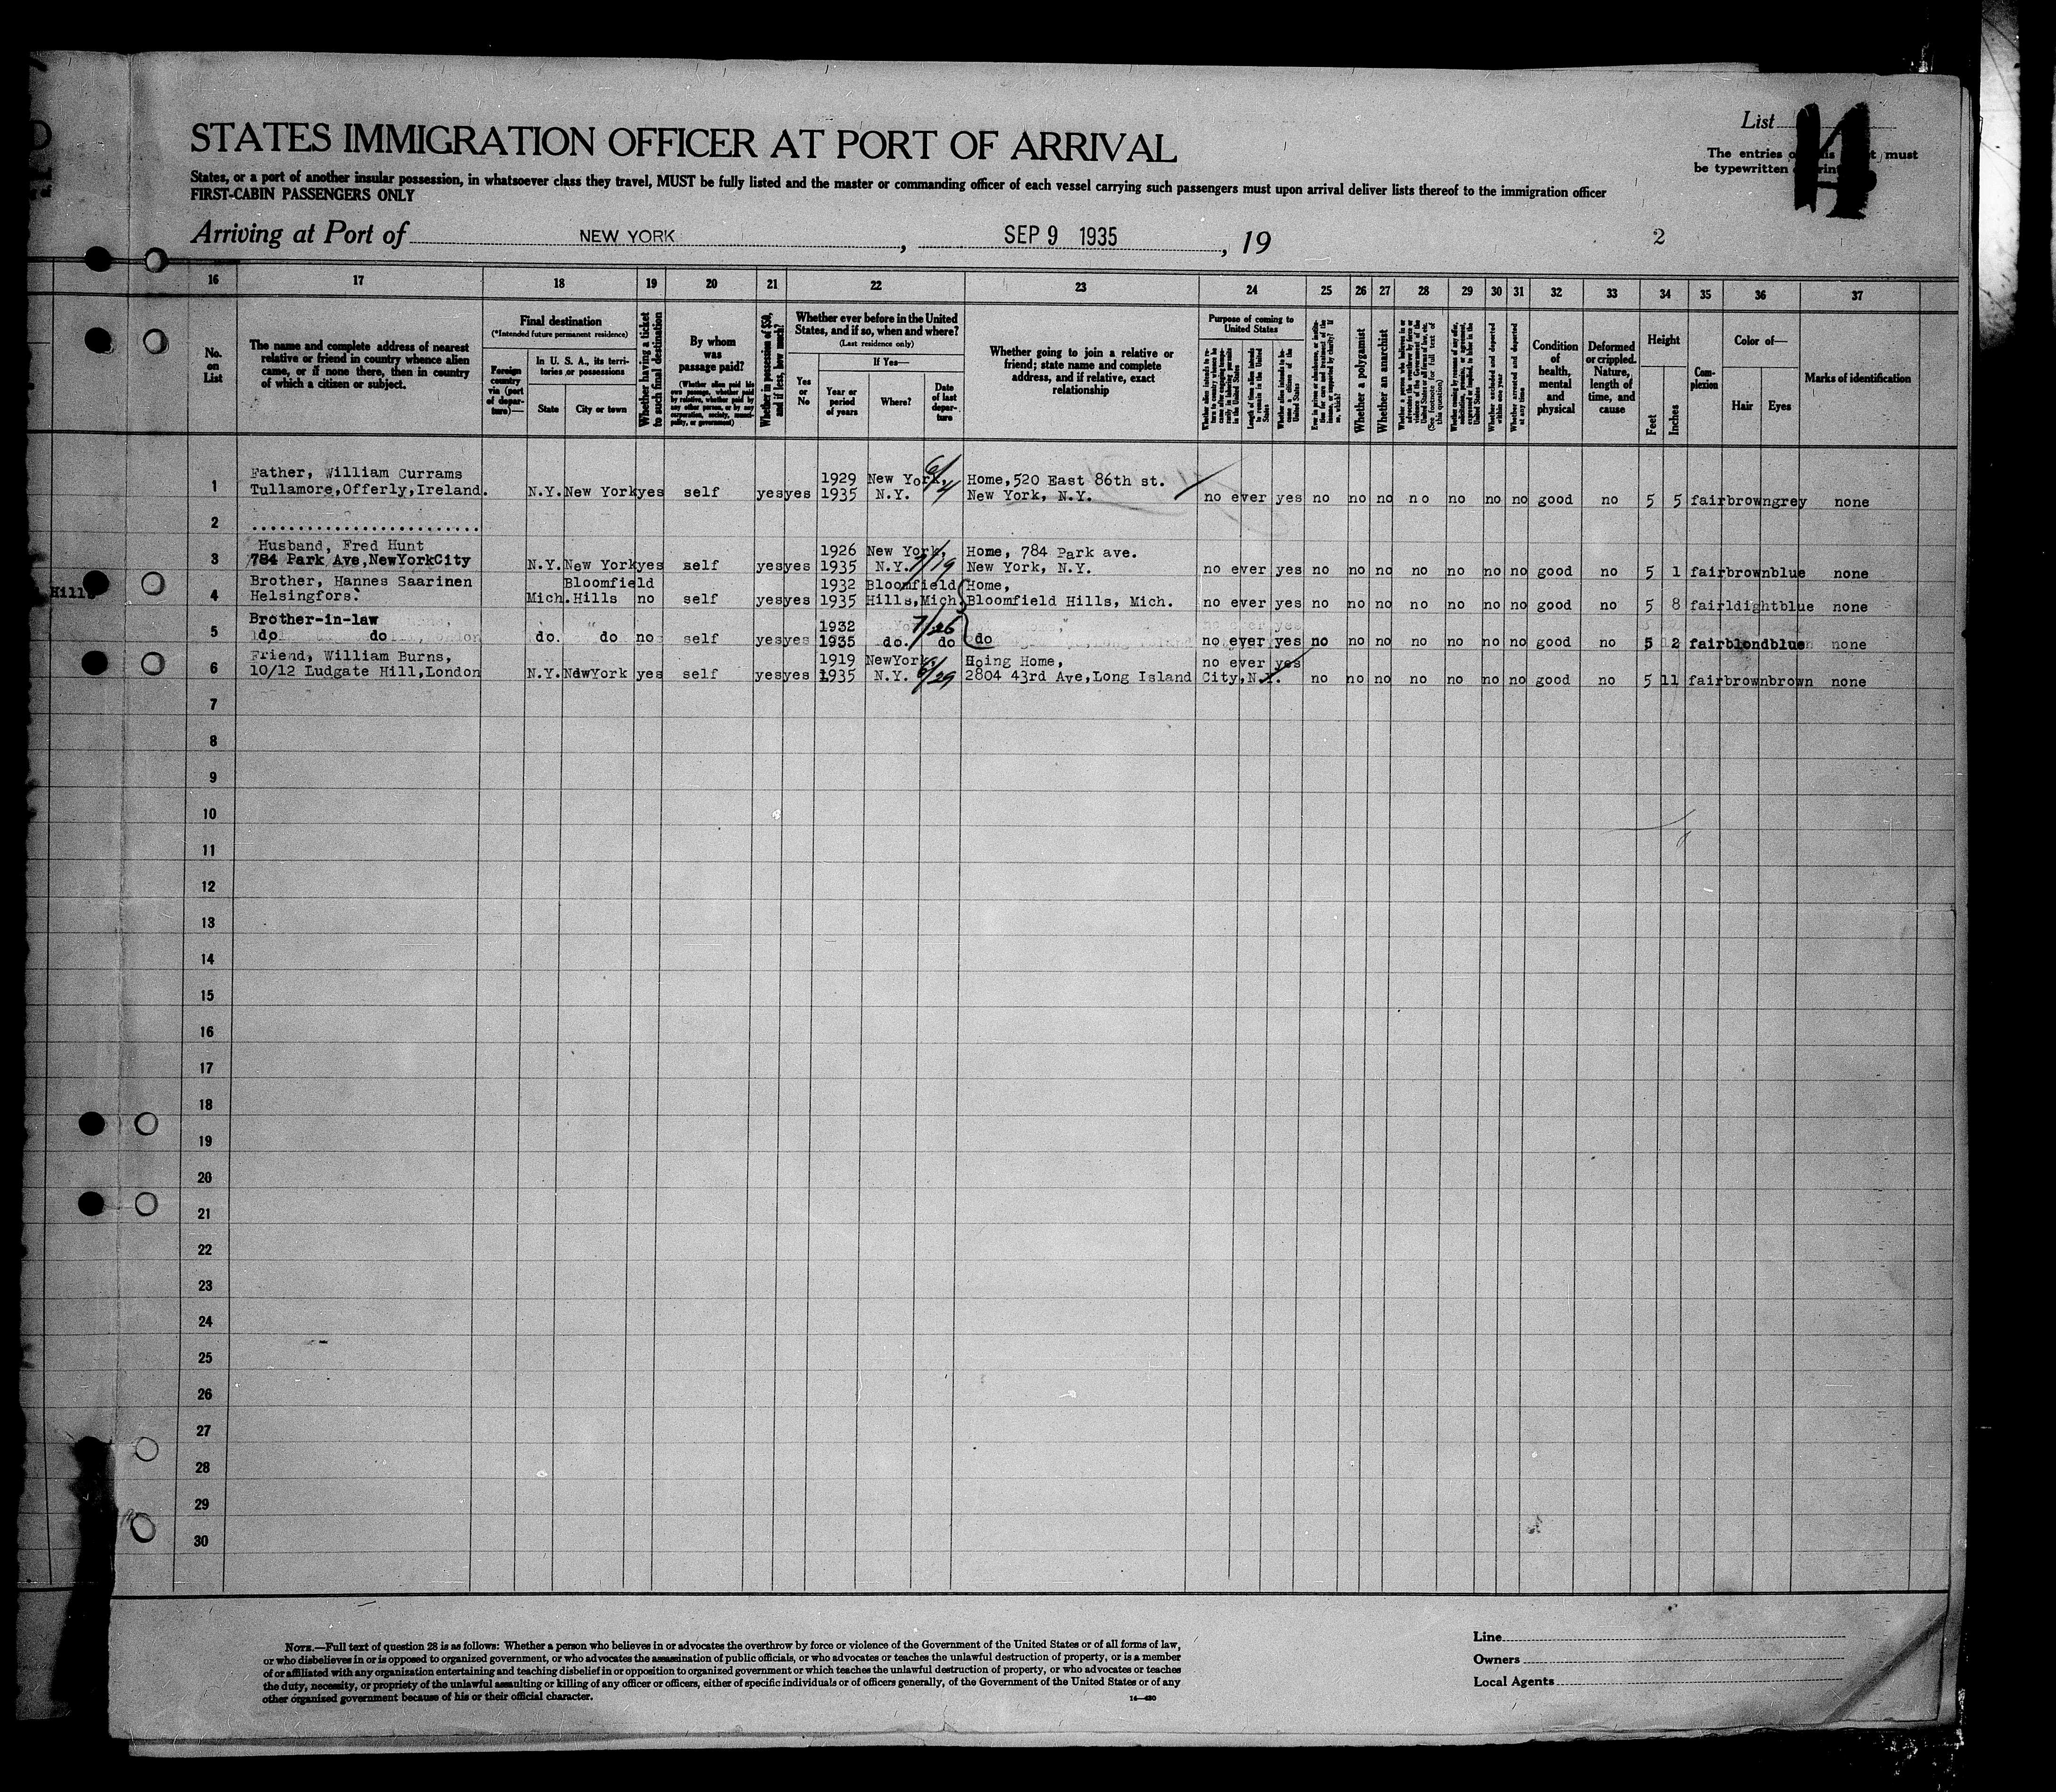 STATES IMMIGRATION OFFICER AT PORT OF ARRIVAL
List
The entries must
be typewritten
States, or a port of another insular possession, in whatsoever class they travel, MUST be fully listed and the master or commanding officer of each vessel carrying such passengers must upon arrival deliver lists thereof to the immigration officer
FIRST-CABIN PASSENGERS ONLY
Arriving at Port of NEW YORK, SEP 9 1935, 19
2
16 17 18 19 20 21 22 23 24 25 26 27 28 29 30 31 32 33 34 35 36 37
No. on List
The name and complete address of nearest
relative or friend in country whence alien
came, or if none there, then in country
of which a citizen or subject.
Final destination
(*Intended future permanent residence)
Foreign country via (port of departure)—
In U. S. A., its territories or possessions
State
City or town
Whether having a ticket to such final destination
By whom was passage paid?
(Whether alien paid his own passage, whether paid by relative, whether paid by any other person, or by any corporation, society, municipality, or government)
Whether in possession of $50, and if less, how much?
Whether ever before in the United
States, and if so, when and where?
(Last residence only)
Yes or No
If Yes—
Year or period of years
Where?
Date of last departure
Whether going to join a relative or
friend; state name and complete
address, and if relative, exact
relationship
Purpose of coming to United States
Length of time alien intends to remain in the United States
Whether alien intends to become a citizen of the United States
Whether a polygamist
Whether an anarchist
(See footnote for full text of this question)
Whether excluded and deported within one year
Whether arrested and deported at any time
Condition of health, mental and physical
Deformed or crippled. Nature, length of time, and cause
Height
Feet
Inches
Complexion
Color of—
Hair
Eyes
Marks of identification
Father, William Currams 1929 New York, 6/4 Home,520 East 86th st.
1 Tullamore,Offerly,Ireland. N.Y. New York yes self yes yes 1935 N.Y. New York, N.Y. no ever yes no no no no no no no good no 5 5 fair brown grey none
2 ........................
Husband, Fred Hunt 1926 New York, Home, 784 Park ave.
3 784 Park Ave,NewYorkCity N.Y. New York yes self yes yes 1935 N.Y. 7/19 New York, N.Y. no ever yes no no no no no no no good no 5 1 fair brown blue none
Brother, Hannes Saarinen Bloomfield 1932 Bloomfield Home,
Hills 4 Helsingfors. Mich. Hills no self yes yes 1935 Hills,Mich. Bloomfield Hills, Mich. no ever yes no no no no no no no good no 5 8 fair ldight blue none
Brother-in-law 1932 7/26
5 do do do. do no self yes yes 1935 do. do do no ever yes no no no no no no no good no 5 2 fair blond blue none
Friend, William Burns, 1919 NewYork, Hoing Home, no ever yes
6 10/12 Ludgate Hill,London N.Y. NdwYork yes self yes yes 1935 N.Y. 6/29 2804 43rd Ave,Long Island City,N.Y. no no no no no no no good no 5 11 fair brown brown none
7
8
9
10
11
12
13
14
15
16
17
18
19
20
21
22
23
24
25
26
27
28
29
30
NOTE.—Full text of question 28 is as follows: Whether a person who believes in or advocates the overthrow by force or violence of the Government of the United States or of all forms of law,
or who disbelieves in or is opposed to organized government, or who advocates the assassination of public officials, or who advocates or teaches the unlawful destruction of property, or is a member
of or affiliated with any organization entertaining and teaching disbelief in or opposition to organized government or which teaches the unlawful destruction of property, or who advocates or teaches
the duty, necessity, or propriety of the unlawful assaulting or killing of any officer or officers, either of specific individuals or of officers generally, of the Government of the United States or of any
other organized government because of his or their official character.
14—430
Line
Owners
Local Agents